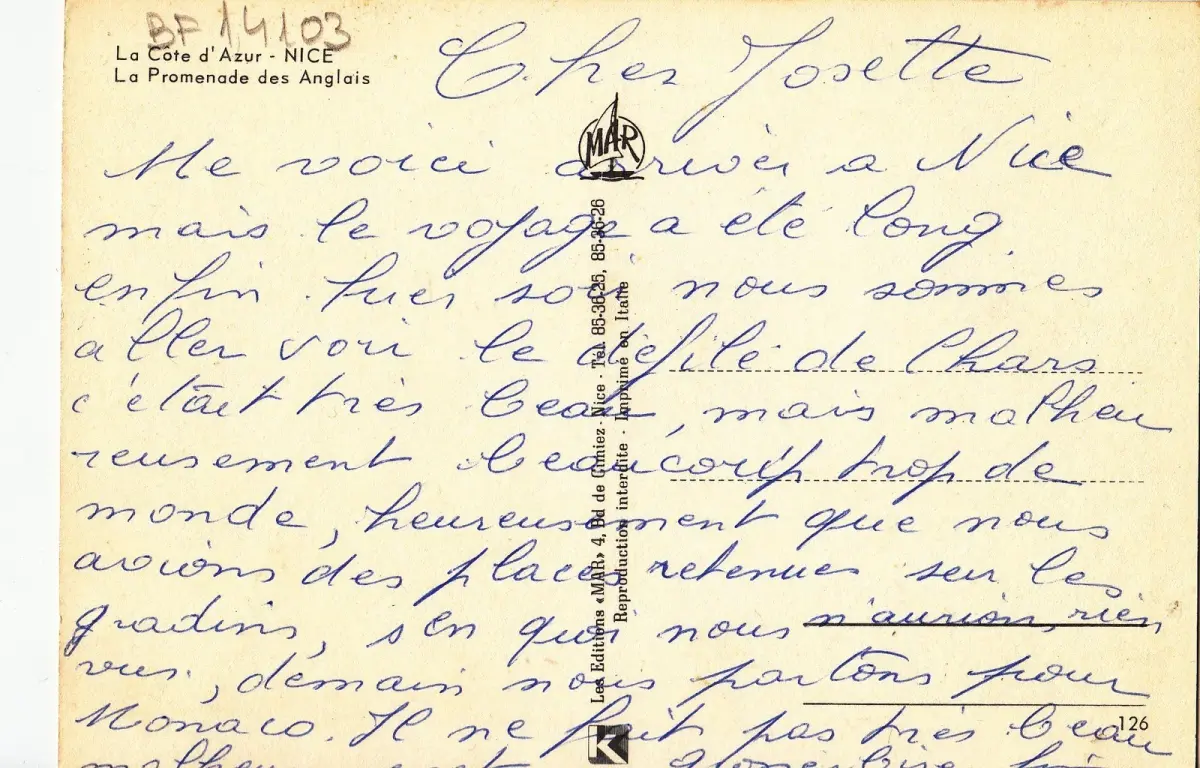 BF 14103
La Côte d'Azur - NICE
La Promenade des Anglais
Cher Josette
Me voici arrivér a Nice
mais le voyage a été long
enfin hier soir nous sommes
aller voir le défilé de Chars
c'était très beau, mais malheu
reusement beaucoup trop de
monde, heureusement que nous
avions des places retenues sur les
gradins, sen quoi nous n'aurions rien
vus, demain nous partons pour
Monaco. Il ne fait pas très beau
MAR
Les Editions «MAR» 4, Bd de Cimiez - Nice - Tél. 85-36-25, 85-36-26
Reproduction interdite - Imprimé en Italie
K
126